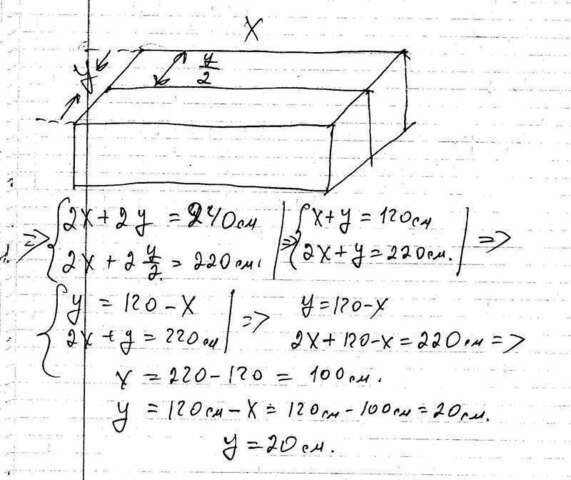 X
y
y/2
=> { 2x + 2y = 240см | => { x + y = 120см | =>
2x + 2 y/2 = 220см. | 2x + y = 220см.
{ y = 120 - x | => y = 120 - x
2x + y = 220см | 2x + 120 - x = 220см =>
x = 220 - 120 = 100см.
y = 120см - x = 120см - 100см = 20см.
y = 20см.